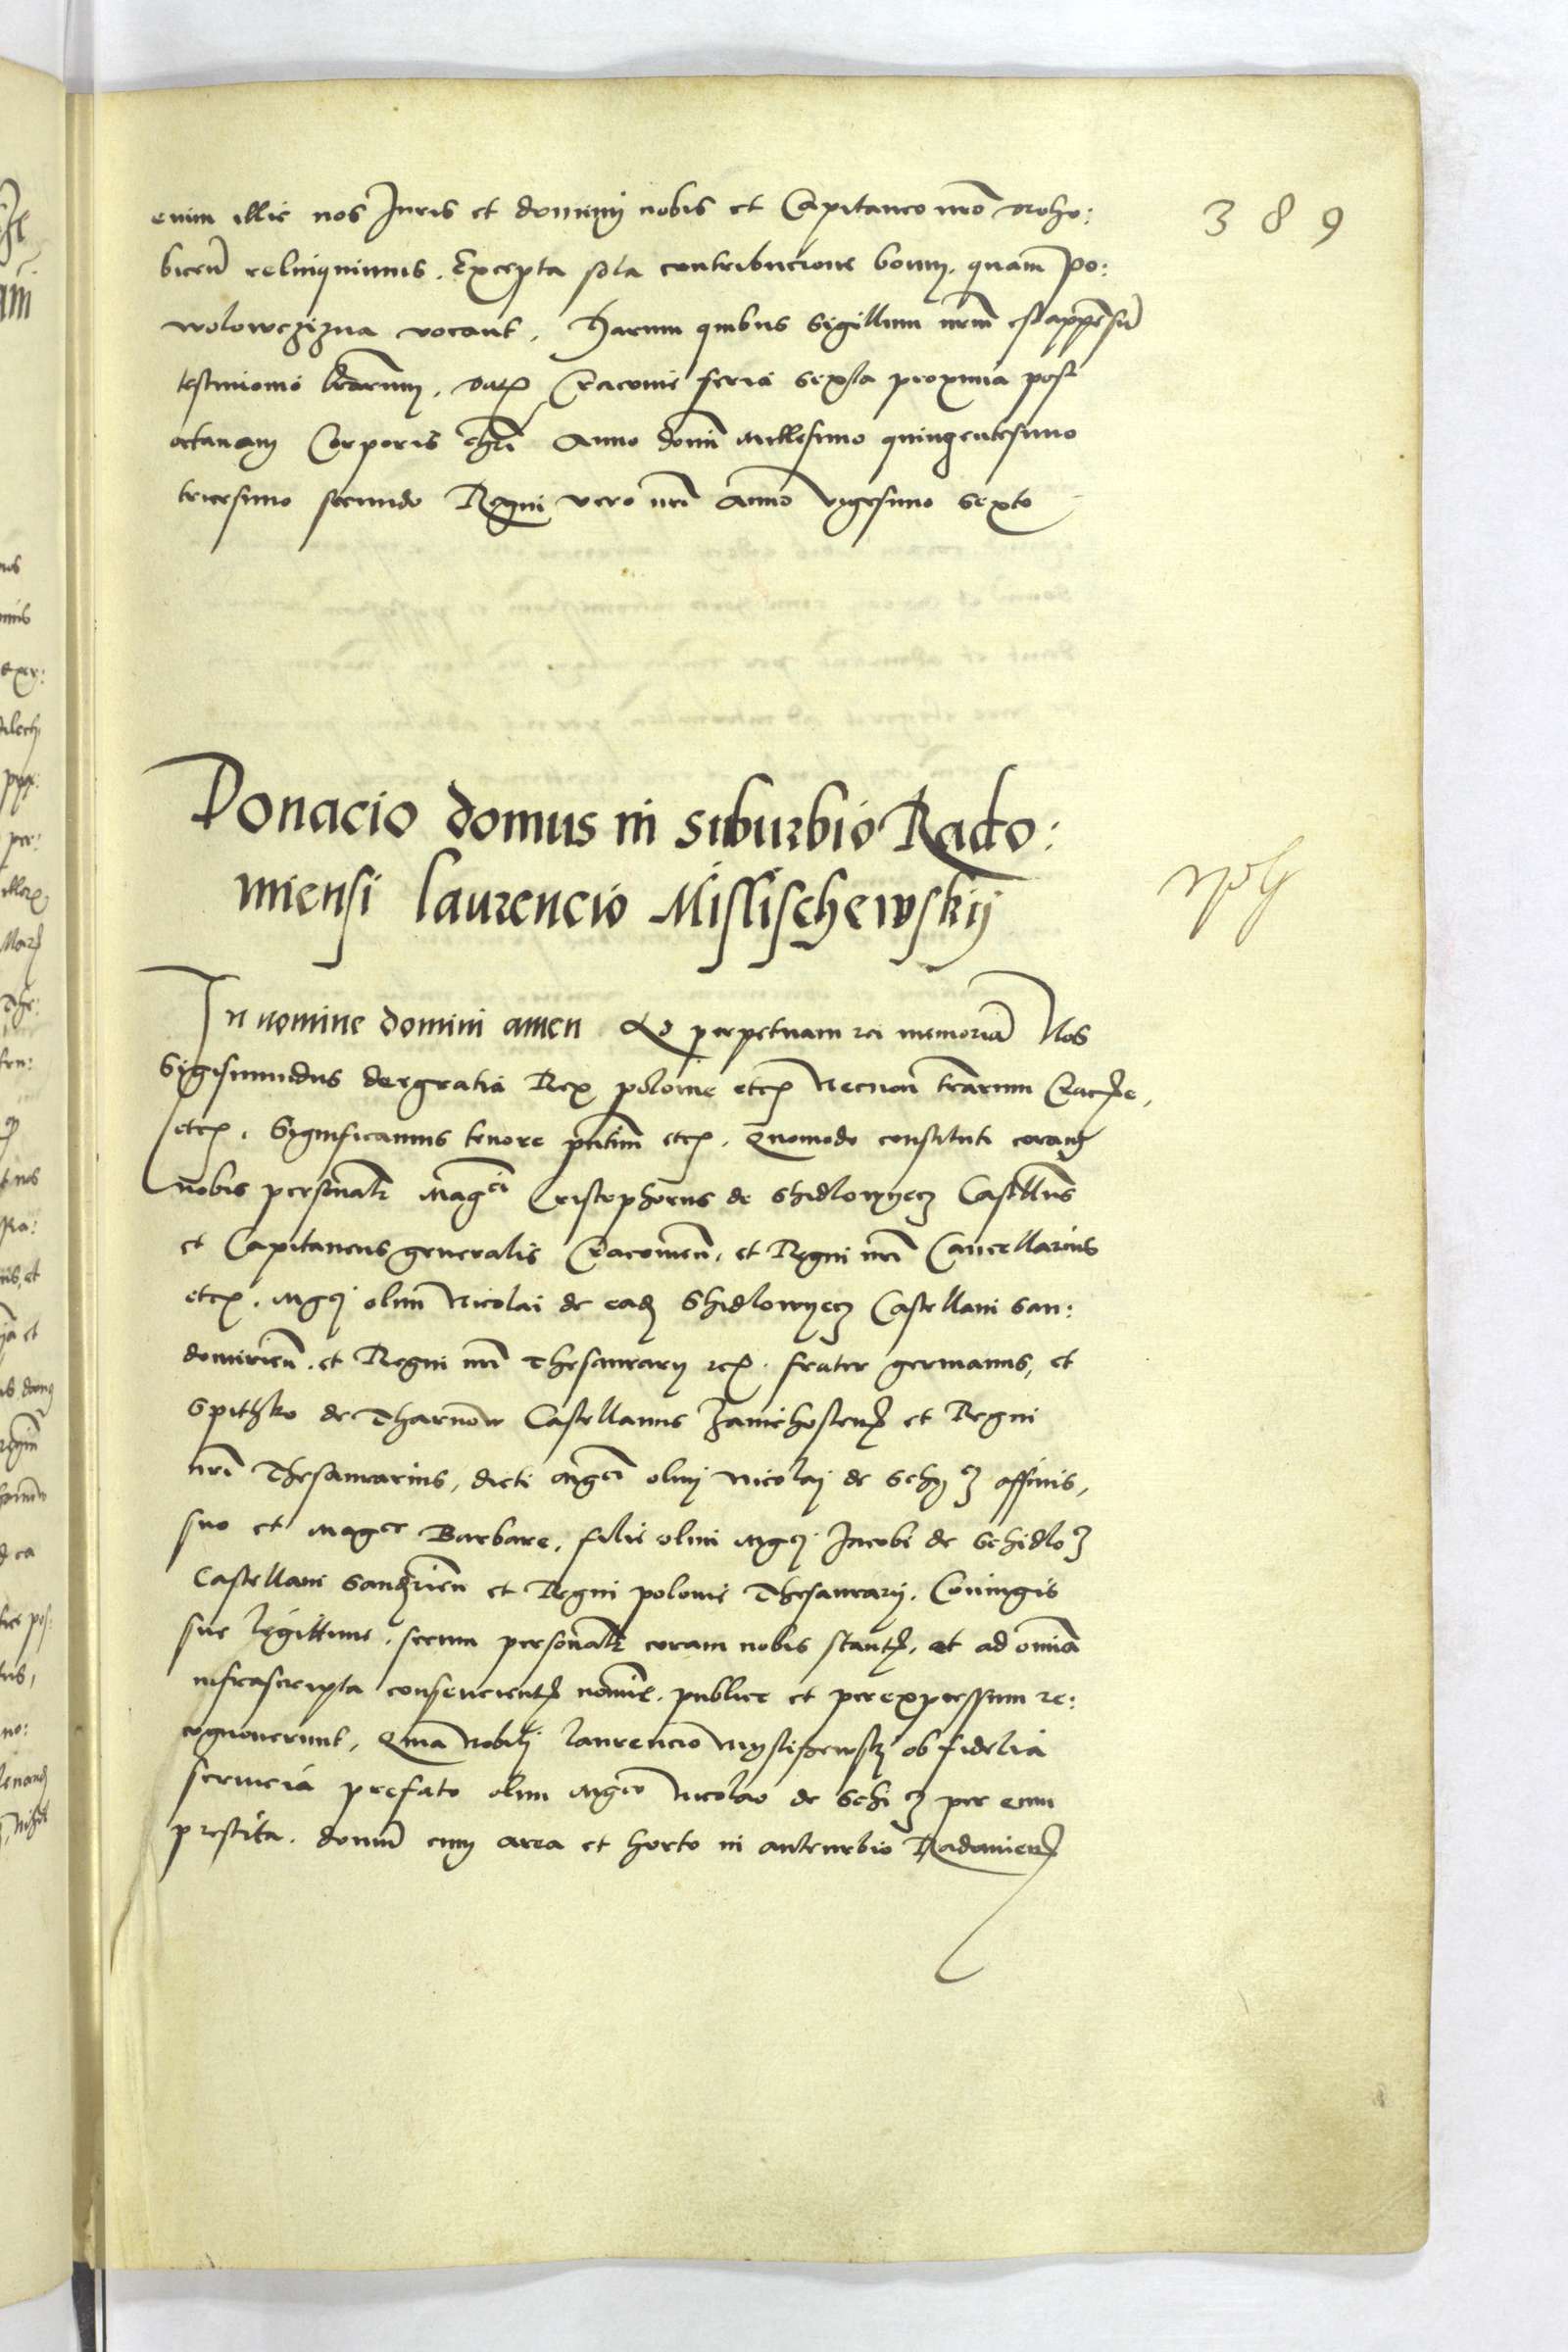 389
enim illic nos Juris et dominij nobis et Capitaneo nro droho:
bicen relinquimus. Excepta sola contribucione boum. quam po:
wolowczizna vocant. Harum quibus Sigillum nrum est appensu
testimonio lrarum. Dat Cracovie feria sexta proxima post
octavam Corporis chri Anno domi Millesimo quingentesimo
tricesimo secundo Regni vero nri Anno vigesimo sexto
Donacio domus in suburbio Rado:
miensi Laurencio Missischewskij
In nomine domini amen Ad perpetuam rei memoria Nos
Sigismundus dei gratia Rex polonie etc Necnon trarum Crac,
etc. Significamus tenore pntium etc. Quomodo constituti coram
nobis personalr Magci Cristophorus de Shidlowyecz Castellus
et Capitaneus generalis Cracovien. et Regni nri Cancellarius
etc. Mgci olim Nicolai de eadem Shidlowyecz Castellani San:
domirien. et Regni nri Thesaurarij etc. frater germanus, et
Spithko de Tharnow Castellanus Zawichosten et Regni
nri Thesaurarius, dicti Mgci olim Nicolaj de Schy cz affinis,
suo et Magce Barbare, filie olim Mgci Jacobi de Schidlo cz
Castellani Sandrien et Regni polonie Thesaurarij. Coniugis
sue legittime. secum personalr coram nobis stant, et ad omia
infrascripta consencient nomine. publice et per expressum re:
cognoverunt, Quia Nobili Laurencio Mystisewski ob fidelia
servicia prefato olim Mgco Nicolao de Schi cz per eum
prestita. domum cum area et horto in anteurbio Radomien